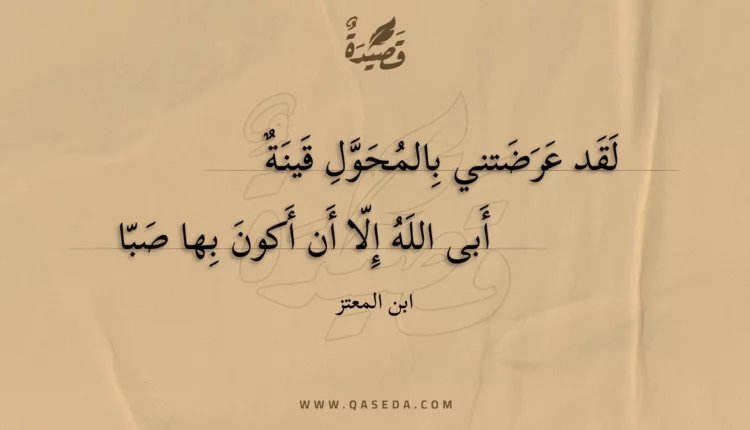 قَصِيْدَةٌ
لَقَد عَرَضَتني بِالمُحَوَّلِ قَينَةٌ
أَبى اللَهُ إِلّا أَن أَكونَ بِها صَبّا
ابن المعتز
WWW.QASEDA.COM